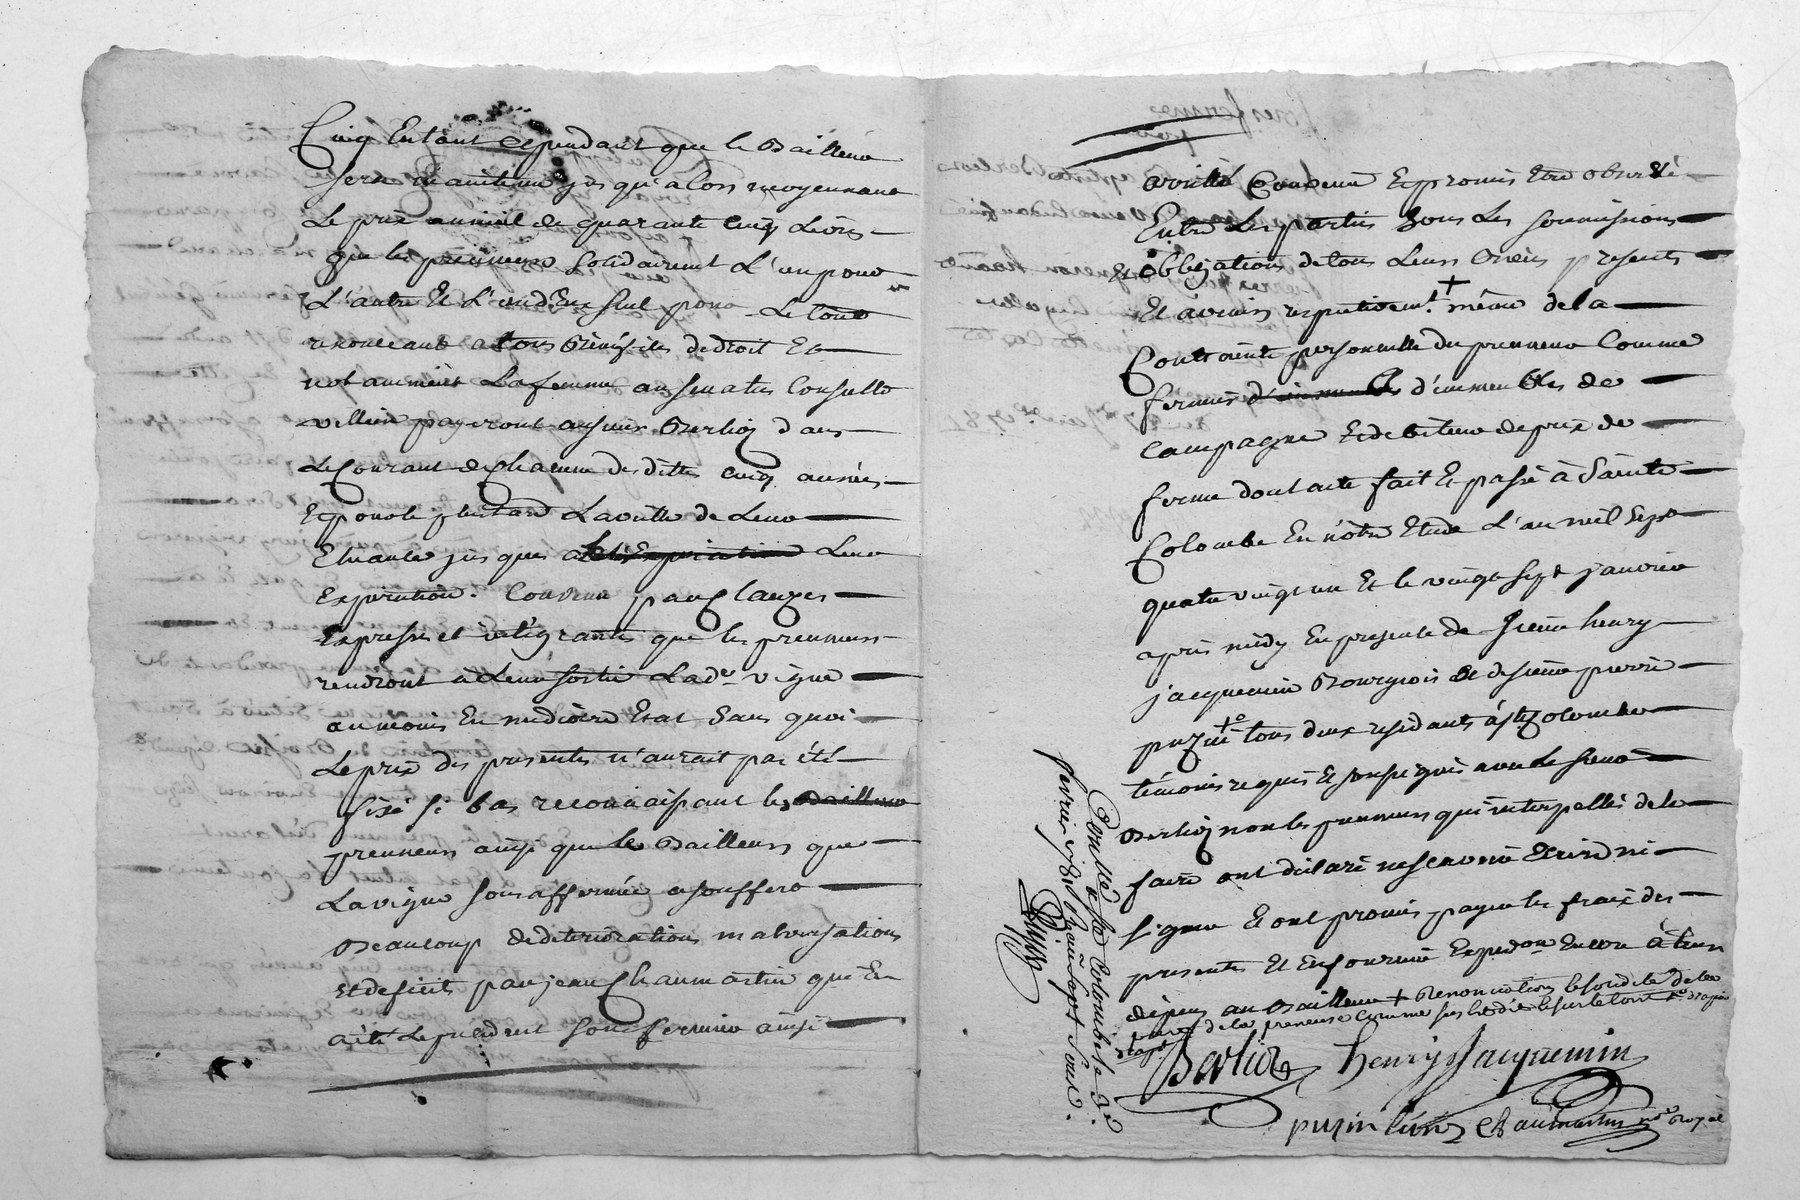 Cinq Entant cependant que le Bailleur
sera maintenu jusqu'alors moyennant
Le prix annuel de quarante cinq Livres
que les preneurs solidairement L'un pour
L'autre Et L'un d'Eux seul pour Le tout
renonceant a tous Bénéfices de droit Et
notamment La femme au senatus Consulte
velleien payeront au sieur Berlioz dans
Le Courant de Chacune des dittes cinq années
Et pour le plus tard La veille de Leur
Echute jusques a Leur
Expiration. Convenu par Clauzes
Expresses et intégrantes que les preneurs
rendront à Leur sortie Lade vigne
au moins En médiocre Etat Sans quoi
Le prix des presentes n'aurait pas été
fixé si bas reconnaissant les Bailleur
preneurs ainsi que le Bailleur que
La vigne sous affermée a souffert
Beaucoup de deteriorations malversations
et deficits par jean Chaumartin qui En
a été Le précédent sous fermier ainsi
arrêté Convenu Et promis Etre observé
Entre Les parties sous Les soumissions
Et obligations de tous Leurs Biens presents
Et avenirs respectivemt. + même de la
Contrainte personnelle du preneur Comme
fermier d'immeubles d'immeubles de
Campagne Et debiteur de prix de
ferme dont acte fait Et passé à Sainte
Colombe En nôtre Etude L'an mil Sept
quatre vingt un Et le vingt sept janvier
après midy En presence de Sieur henry
jacquemin Bourgeois Et de sieur pierre
puzin tous deux residants à ste Colombe
témoins requis Et soussignés avec le sieur
Berlioz non les preneurs qui interpellés de le
faire ont déclaré ne scavoir Ecrire ni
signer Et ont promis payer les fraix des
presentes Et En fournir Expedon Encore à leurs
dépens au Bailleur + Renonciation
de la preneuse comme
Berlioz henry Jacquemin
puzin Chaumartin nre Royal
Controllé a Ste Colombe le
fevrier 1781 Reçu sept sous